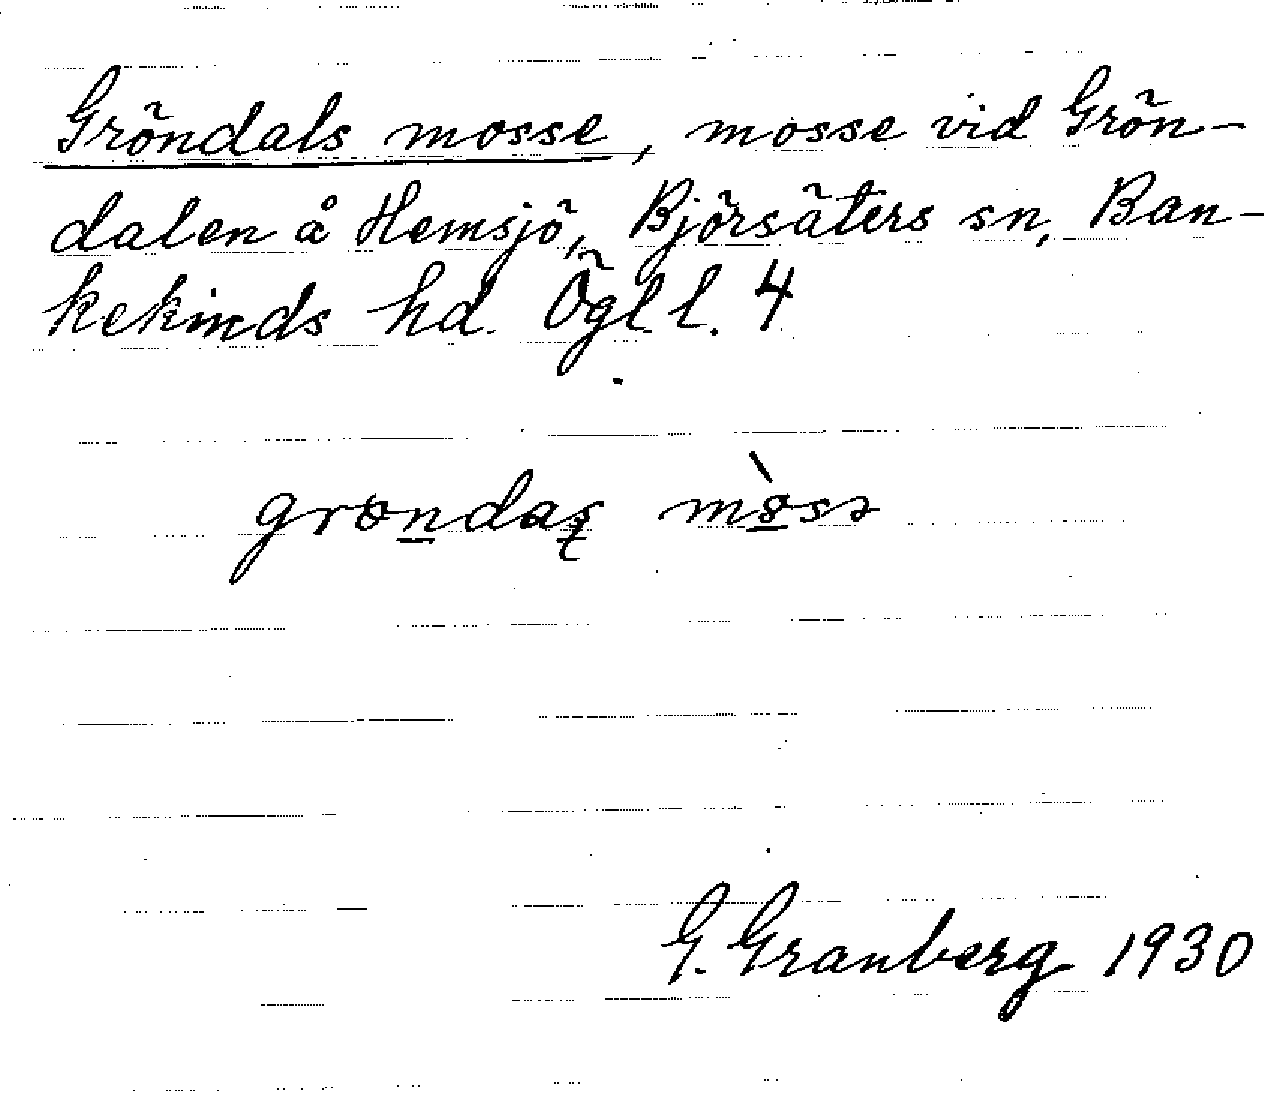 Gröndals mosse, mosse vid Grön-
dalen å Hemsjö, Björsäters sn, Ban-
kekinds hd. Ögl. l. 4
grøndas mòsə
G. Granberg 1930